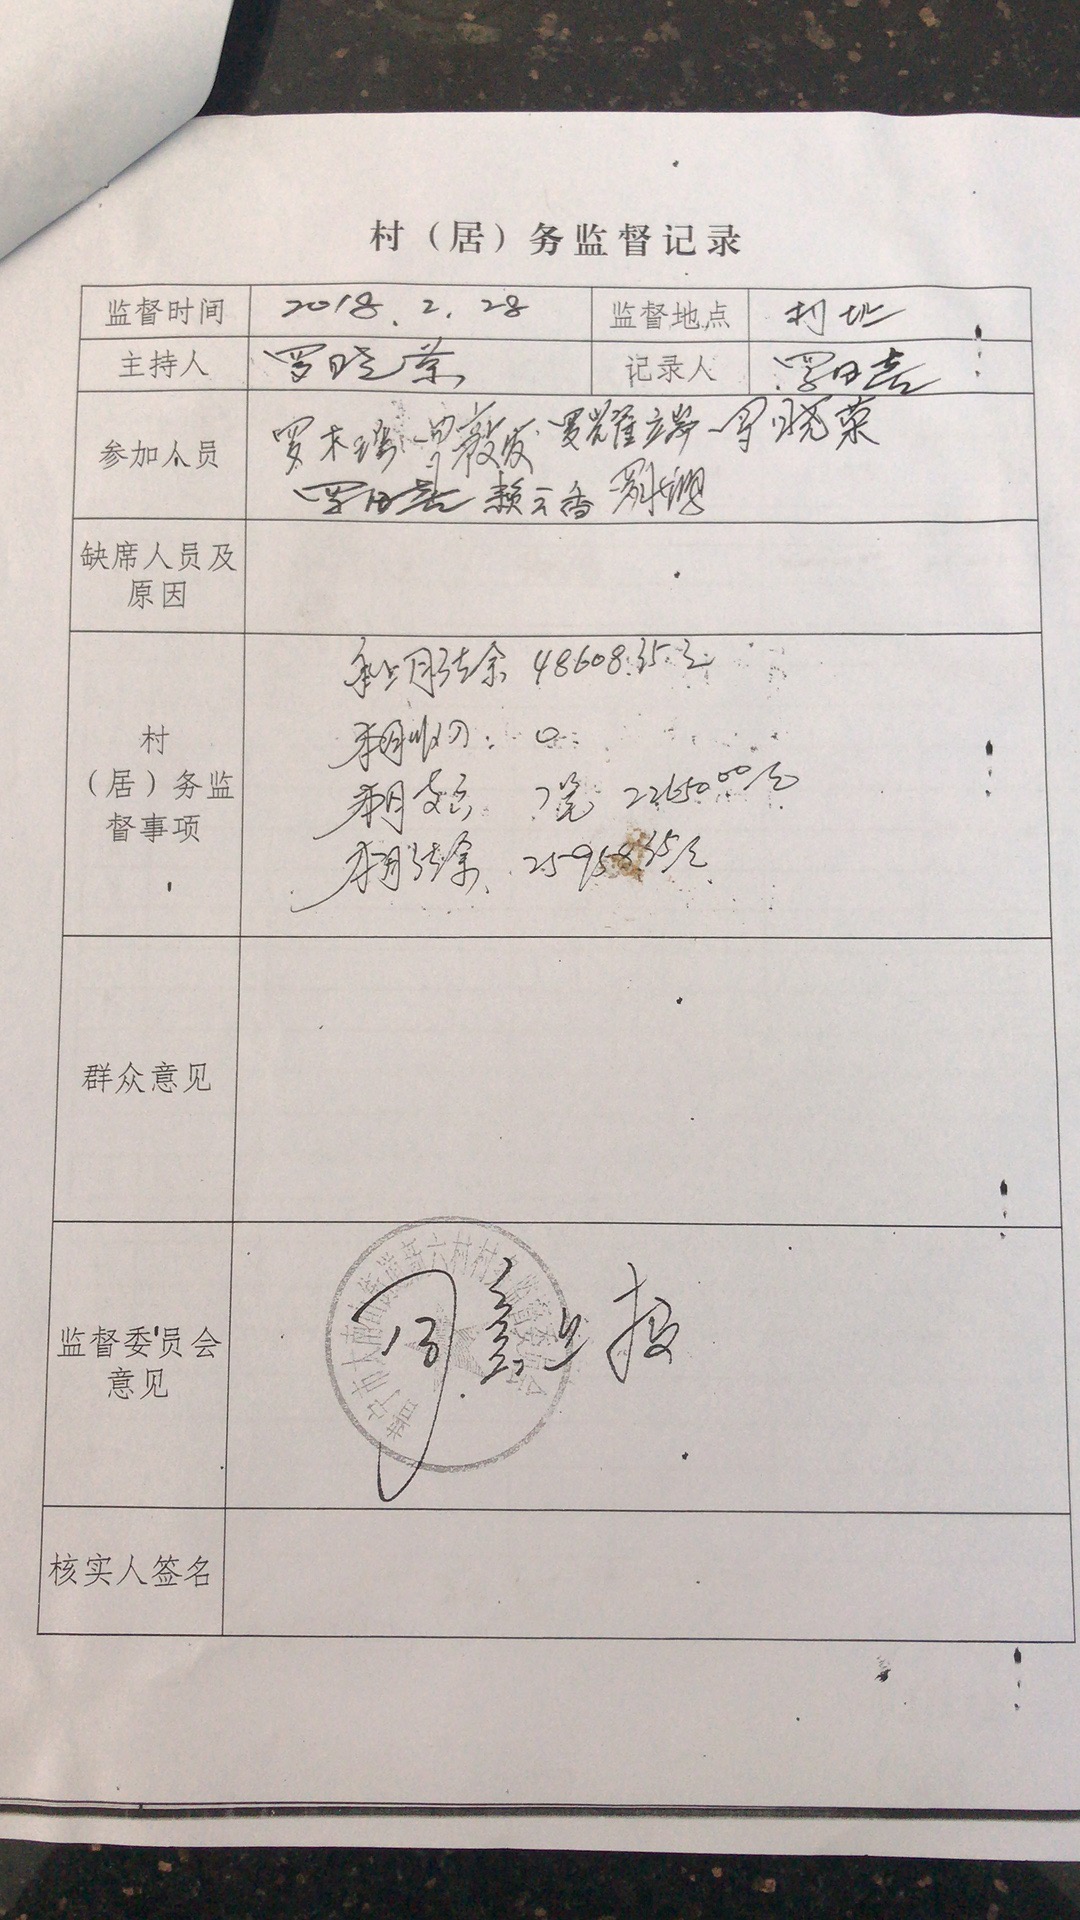 村（居）务监督记录
监督时间 2018.2.28 监督地点 村址
主持人 罗晓荣 记录人 罗日喜
参加人员 罗木 罗 发 罗耀 罗晓荣
罗日喜 赖云香
缺席人员及
原因
承上月结余 48608.35元
本月收入：0
村
（居）务监
督事项
本月支出 7笔 22650.00元
本月结余 25958.35元
群众意见
监督委员会
意见
同意上报
普宁市大南山街道新六村村务监督委员会
核实人签名